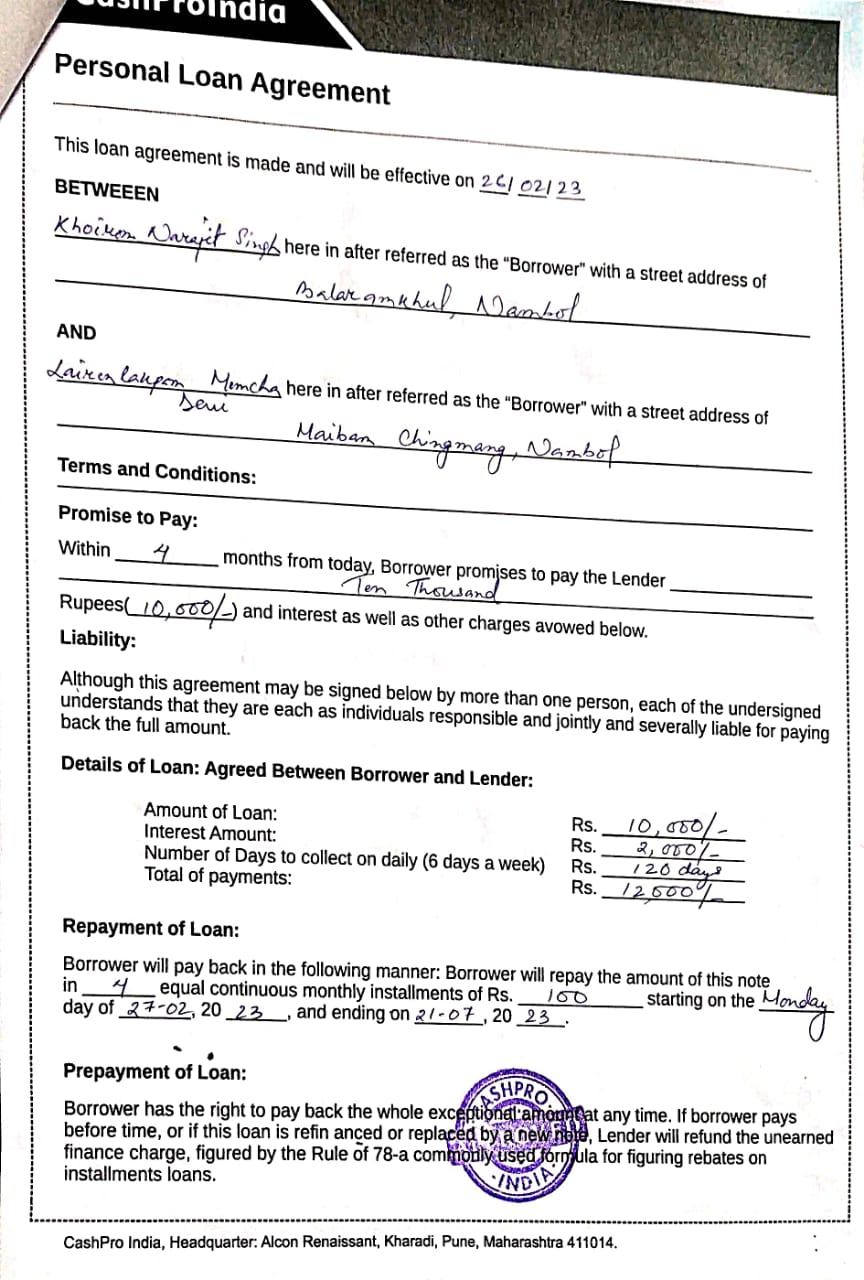 CashProIndia
Personal Loan Agreement
This loan agreement is made and will be effective on 26/02/23
BETWEEEN
Khoirom Narajit Singh here in after referred as the “Borrower” with a street address of
Balaramkhul, Nambol
AND
Lairenlakpam Memcha here in after referred as the “Borrower” with a street address of
Devi
Maibam Chingmang, Nambol
Terms and Conditions:
Promise to Pay:
Within 4 months from today, Borrower promises to pay the Lender
Ten Thousand
Rupees( 10,000/-) and interest as well as other charges avowed below.
Liability:
Although this agreement may be signed below by more than one person, each of the undersigned
understands that they are each as individuals responsible and jointly and severally liable for paying
back the full amount.
Details of Loan: Agreed Between Borrower and Lender:
Amount of Loan: Rs. 10,000/-
Interest Amount: Rs. 2,000/-
Number of Days to collect on daily (6 days a week) Rs. 120 days
Total of payments: Rs. 12,000/-
Repayment of Loan:
Borrower will pay back in the following manner: Borrower will repay the amount of this note
in 4 equal continuous monthly installments of Rs. 100 starting on the Monday
day of 27-02, 20 23, and ending on 21-07, 20 23.
Prepayment of Loan:
Borrower has the right to pay back the whole exceptional amount at any time. If borrower pays
before time, or if this loan is refin anced or replaced by a new note, Lender will refund the unearned
finance charge, figured by the Rule of 78-a commonly used formula for figuring rebates on
installments loans.
CASHPRO
INDIA
CashPro India, Headquarter: Alcon Renaissant, Kharadi, Pune, Maharashtra 411014.